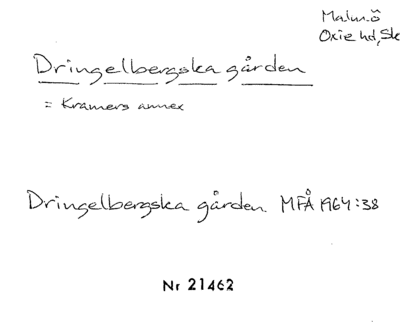 Malmö
Oxie hd, Sk
Dringelbergska gården
= Kramers annex
Dringelbergska gården MFÅ 1964:38
Nr 21462